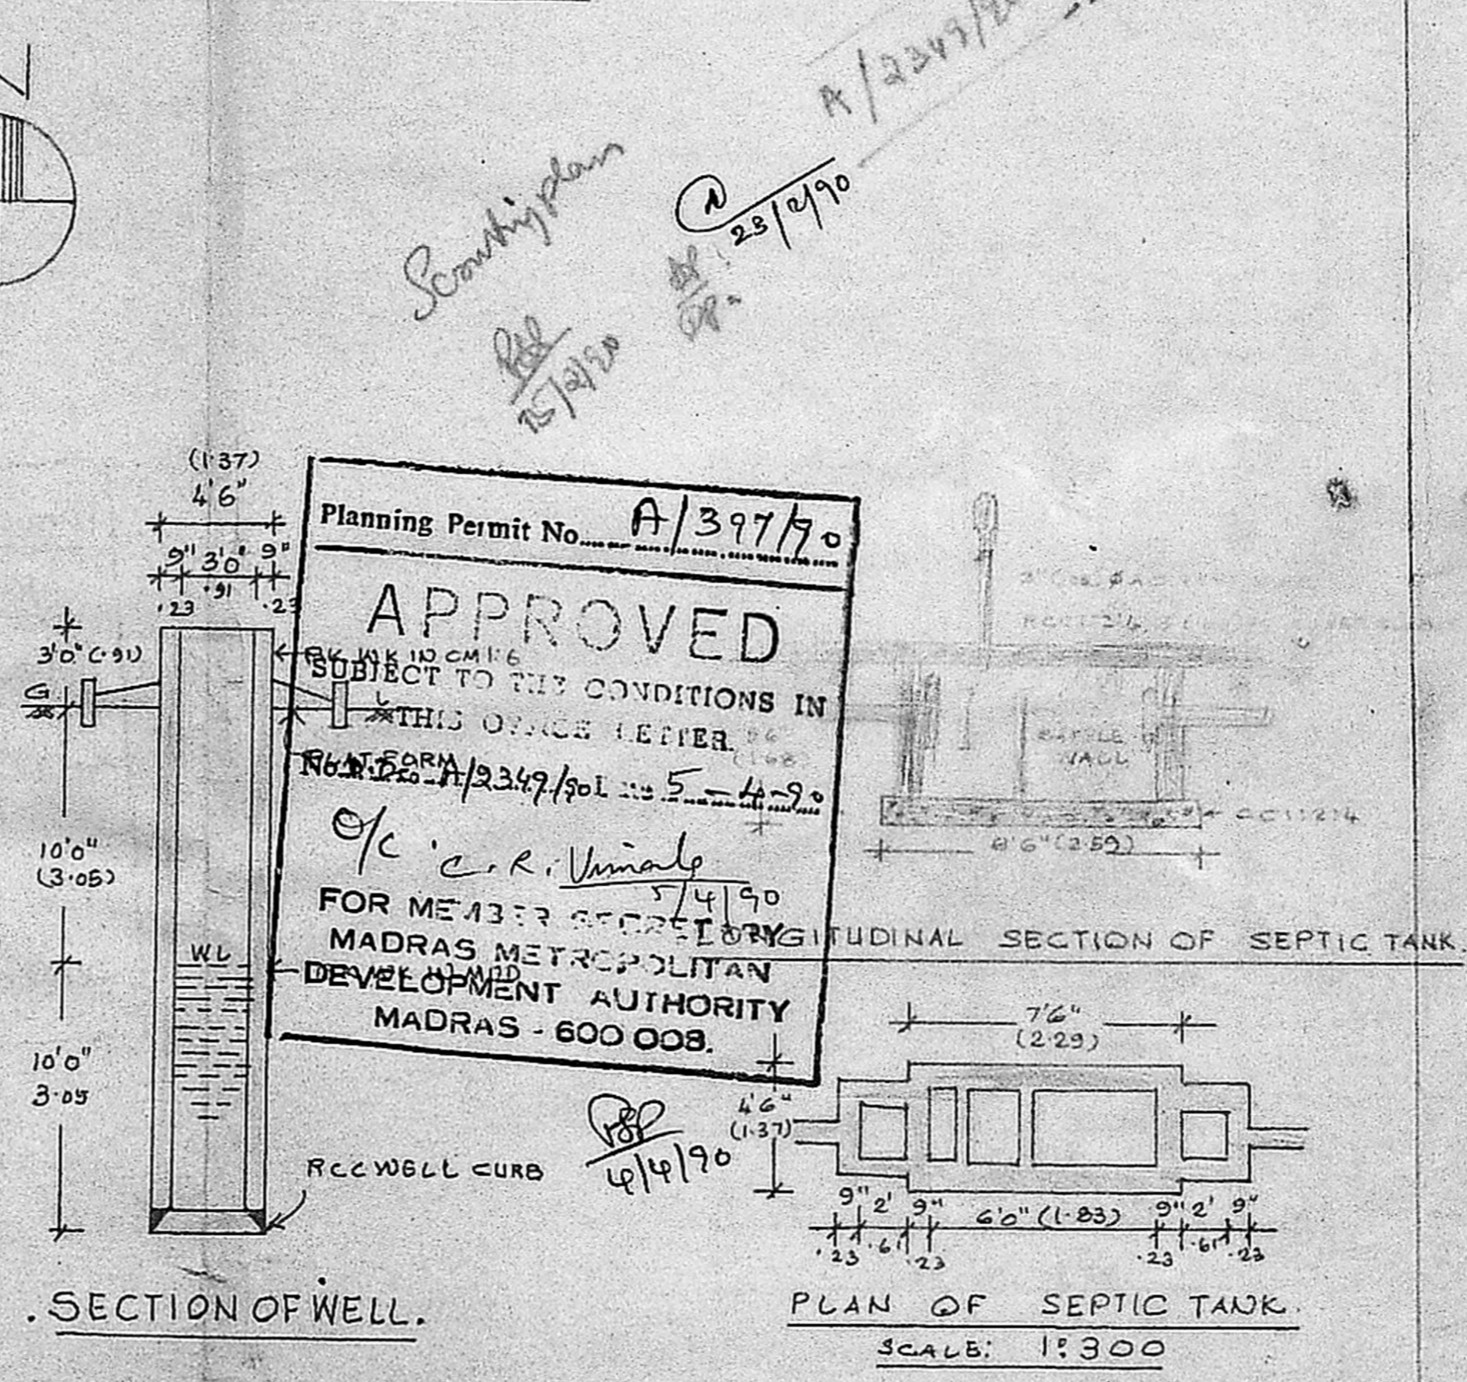 A/2349/90
23/2/90
15/2/90
(1·37)
4'6"
9" 3'0" 9"
·23 ·91 ·23
3'0" (·91)
BK WK IN CM 1:6
G
L
PLATFORM
10'0"
(3·05)
WL
10'0"
3·05
RCC WELL CURB
.SECTION OF WELL.
Planning Permit No. A/397/90
APPROVED
SUBJECT TO THE CONDITIONS IN
THIS OFFICE LETTER.
A/2349/90 5-4-90
O/C C. R. Vimala
5/4/90
FOR MEMBER SECRETARY
MADRAS METROPOLITAN
DEVELOPMENT AUTHORITY
MADRAS - 600 008.
4/4/90
BAFFLE
WALL
CC 1:2:4
8'6" (2·59)
LONGITUDINAL SECTION OF SEPTIC TANK.
7'6"
(2·29)
4'6"
(1·37)
9" 2' 9" 6'0" (1·83) 9" 2' 9"
·23 ·61 ·23 ·23 ·61 ·23
PLAN OF SEPTIC TANK.
SCALE: 1:300